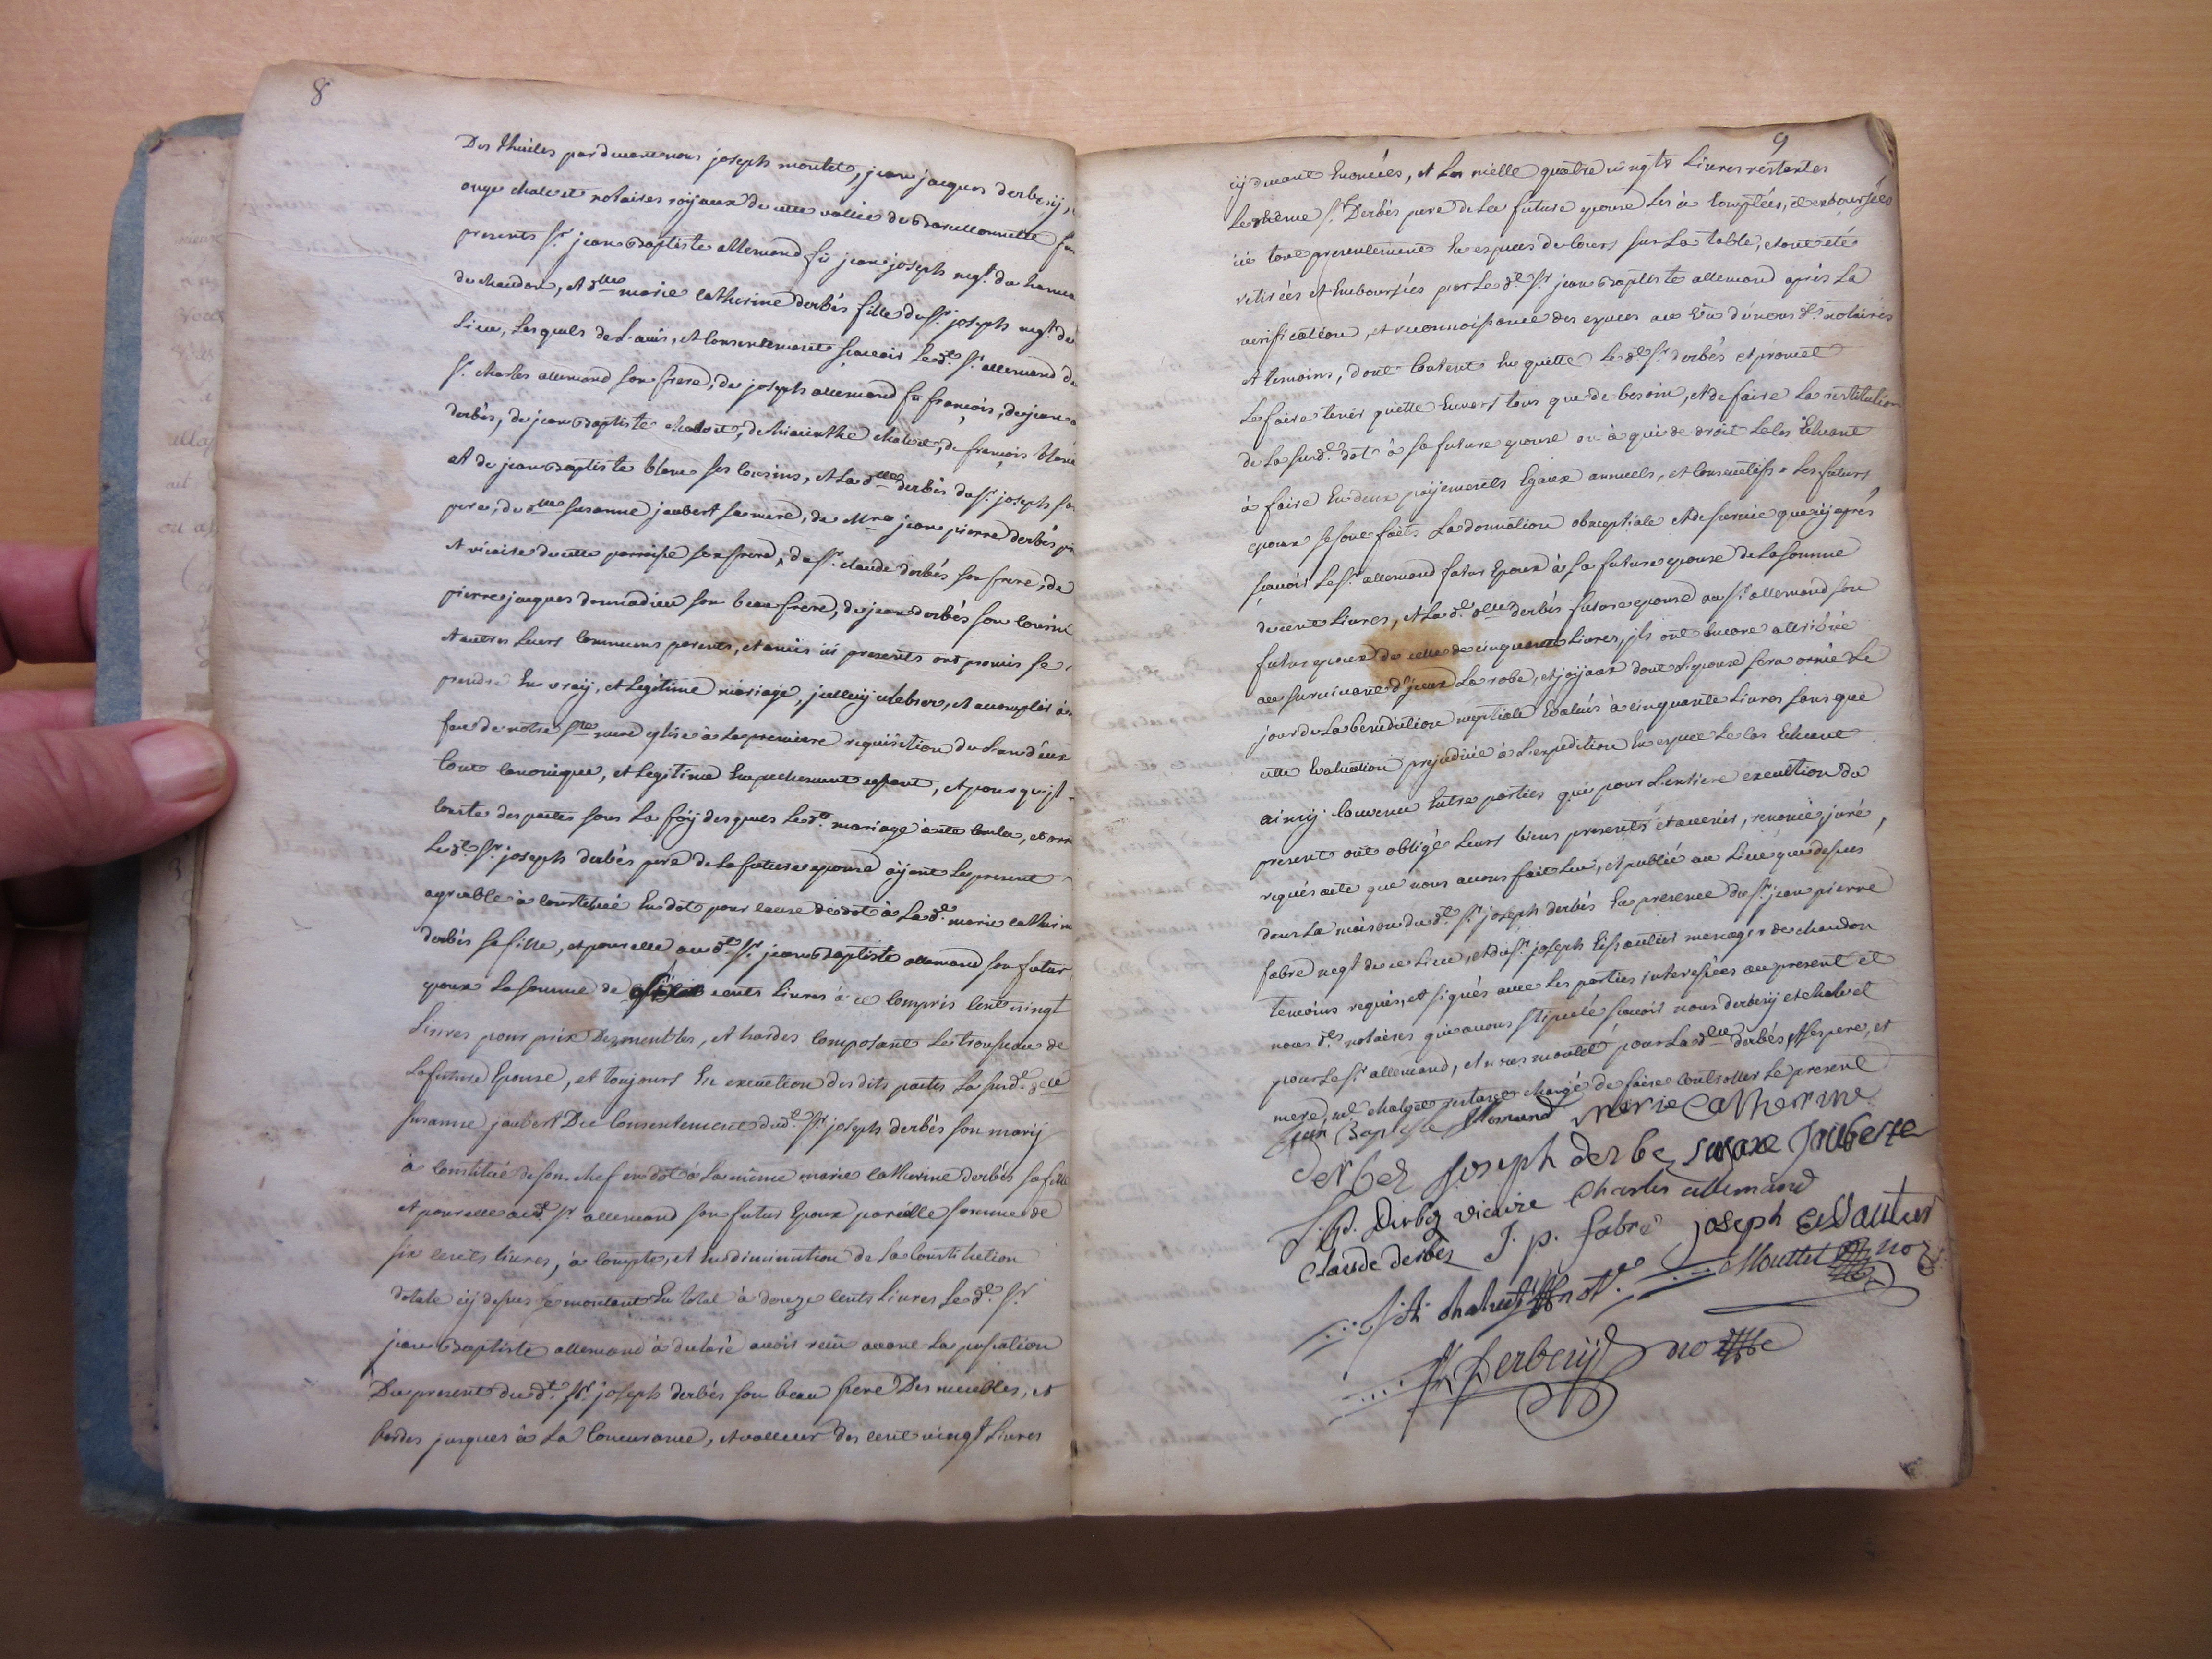 8
Des Thuiles par devant nous joseph moutet, jean jacques derbezij,
ange chalvet notaires roijaux de cette vallée de Barcellonnette fu
presents Sr. jean Baptiste allemand fû jean joseph negt. du hamea
de chaudon, et dlle marie catherine derbés fille du Sr. joseph negt. de
Lieu, Lesquels de L'avis, et consentement sçavoir Le dt. Sr. allemand de
Sr. charles allemand son frere, de joseph allemand fû françois, de jean
derbés, de jean Baptiste chalvet, de hiacinthe chalvet, de françois blanc
et de jean Baptiste blanc ses cousins, et La dlle derbés du Sr. joseph so
pere, de dlle susanne jaubert sa mere, de Mre jean pierre derbés p
et vicaire de cette parroisse son frere, du Sr. claude derbés son frere, de
pierre jacques donnadieu son beau frere, de jean derbés son cousin
et autres Leurs communs parents, et amis ici presents ont promis se
prendre En vraij, et Legitime mariage, jcelluij celebrer, et accomplir en
face de notre Ste mere eglise à La premiere requisition de L'un d'eux
tout canonique, et Legitime Empechement cessant, et pour qu'jl
conste des pactes sous La foij desques Le dt. mariage a été conclu, et arre
Le dt. Sr. joseph derbés pere de La future epouse aijant Le present
agreable à constitué En dot pour cause de dot à La de. marie catherin
derbés sa fille, et pour elle au dt. Sr. jean Baptiste allemand son futur
epoux La somme de six cents Livres à ce compris cent vingt
Livres pour prix Des meubles, et hardes composant Le trousseau de
La future Epouse, et toujours En execution des dits pactes La susde. dlle
susanne jaubert Du consentement dudt. Sr. joseph derbés son marij
à constitué de son chef en dot à La même marie catherine derbés sa fille
et pour elle audt. Sr. allemand son futur Epoux pareille somme de
six cents Livres, à compte, et En diminution de La constitution
dotale cij dessus se montant En total à douze cents Livres Le dt. Sr.
jean Baptiste allemand à declaré avoir reçu avant La passation
Du present du dt. Sr. joseph derbés son beau pere Des meubles, et
hardes jusques à La concurrance, et valleur des cent vingt Livres
9
cij devant Enoncées, et Les mille quatre vingts Livres restantes
Le même Sr. Derbés pere de La future epouse Les à comptées, et deboursées
ici tout presentement En especes de cours sur La table, et ont été
retirées et Emboursées par Le dt. Sr. jean Baptiste allemand après La
verification, et reconnoissance des especes au Vû de nous dts. notaires
et temoins, dont content En quitte Le dt. Sr. derbés et promet
Le faire tenir quitte Envers tous que de besoin, et de faire La restitution
de La susde. dot à sa future epouse ou à qui de droit Le cas Echeant
à faire En deux paijements Egaux annuels, et consecutifs Les futurs
epoux se sont faits La donnation obnuptiale et de survie que cij après
sçavoir Le Sr. allemand futur Epoux à sa future epouse de La somme
de cent Livres, et La de. dlle derbés future epouse au Sr. allemand son
futur epoux de celle de cinquante Livres, jls ont Encore attribué
au survivant d'jceux La robe, et joijaux dont L'epouse sera ornée Le
jour de La benediction nuptiale Evalués à cinquante Livres sans que
cette Evaluation prejudicie à L'expedition En espece Le cas Echeant
ainsij convenu Entre parties qui pour L'entiere execution du
present ont obligé Leurs biens presents et avenirs, renoncé, juré,
requis acte que nous avons fait Lû, et publié au Lieu que dessus
dans La maison du dt. Sr. joseph derbés En presence du Sr. jean pierre
fabre negt de ce Lieu, et du Sr. joseph Eissautier menager de chaudon
temoins requis, et signés avec Les parties interessées au present et
nous dts. notaires qui avons stipulé sçavoir nous derbezij et chalvet
pour Le Sr. allemand, et nous moutet pour La dlle derbés, ses pere, et
mere, chalvet restant chargé de faire controller Le present
jean Baptiste Allemand marie Catherine
Derbez joseph derbe susane Jauberte
J. p. Derbez vicaire Charles allemand
Claude derbez J. p. fabre joseph Eissautier
chalvet not. Mouttet no
Derbezij not